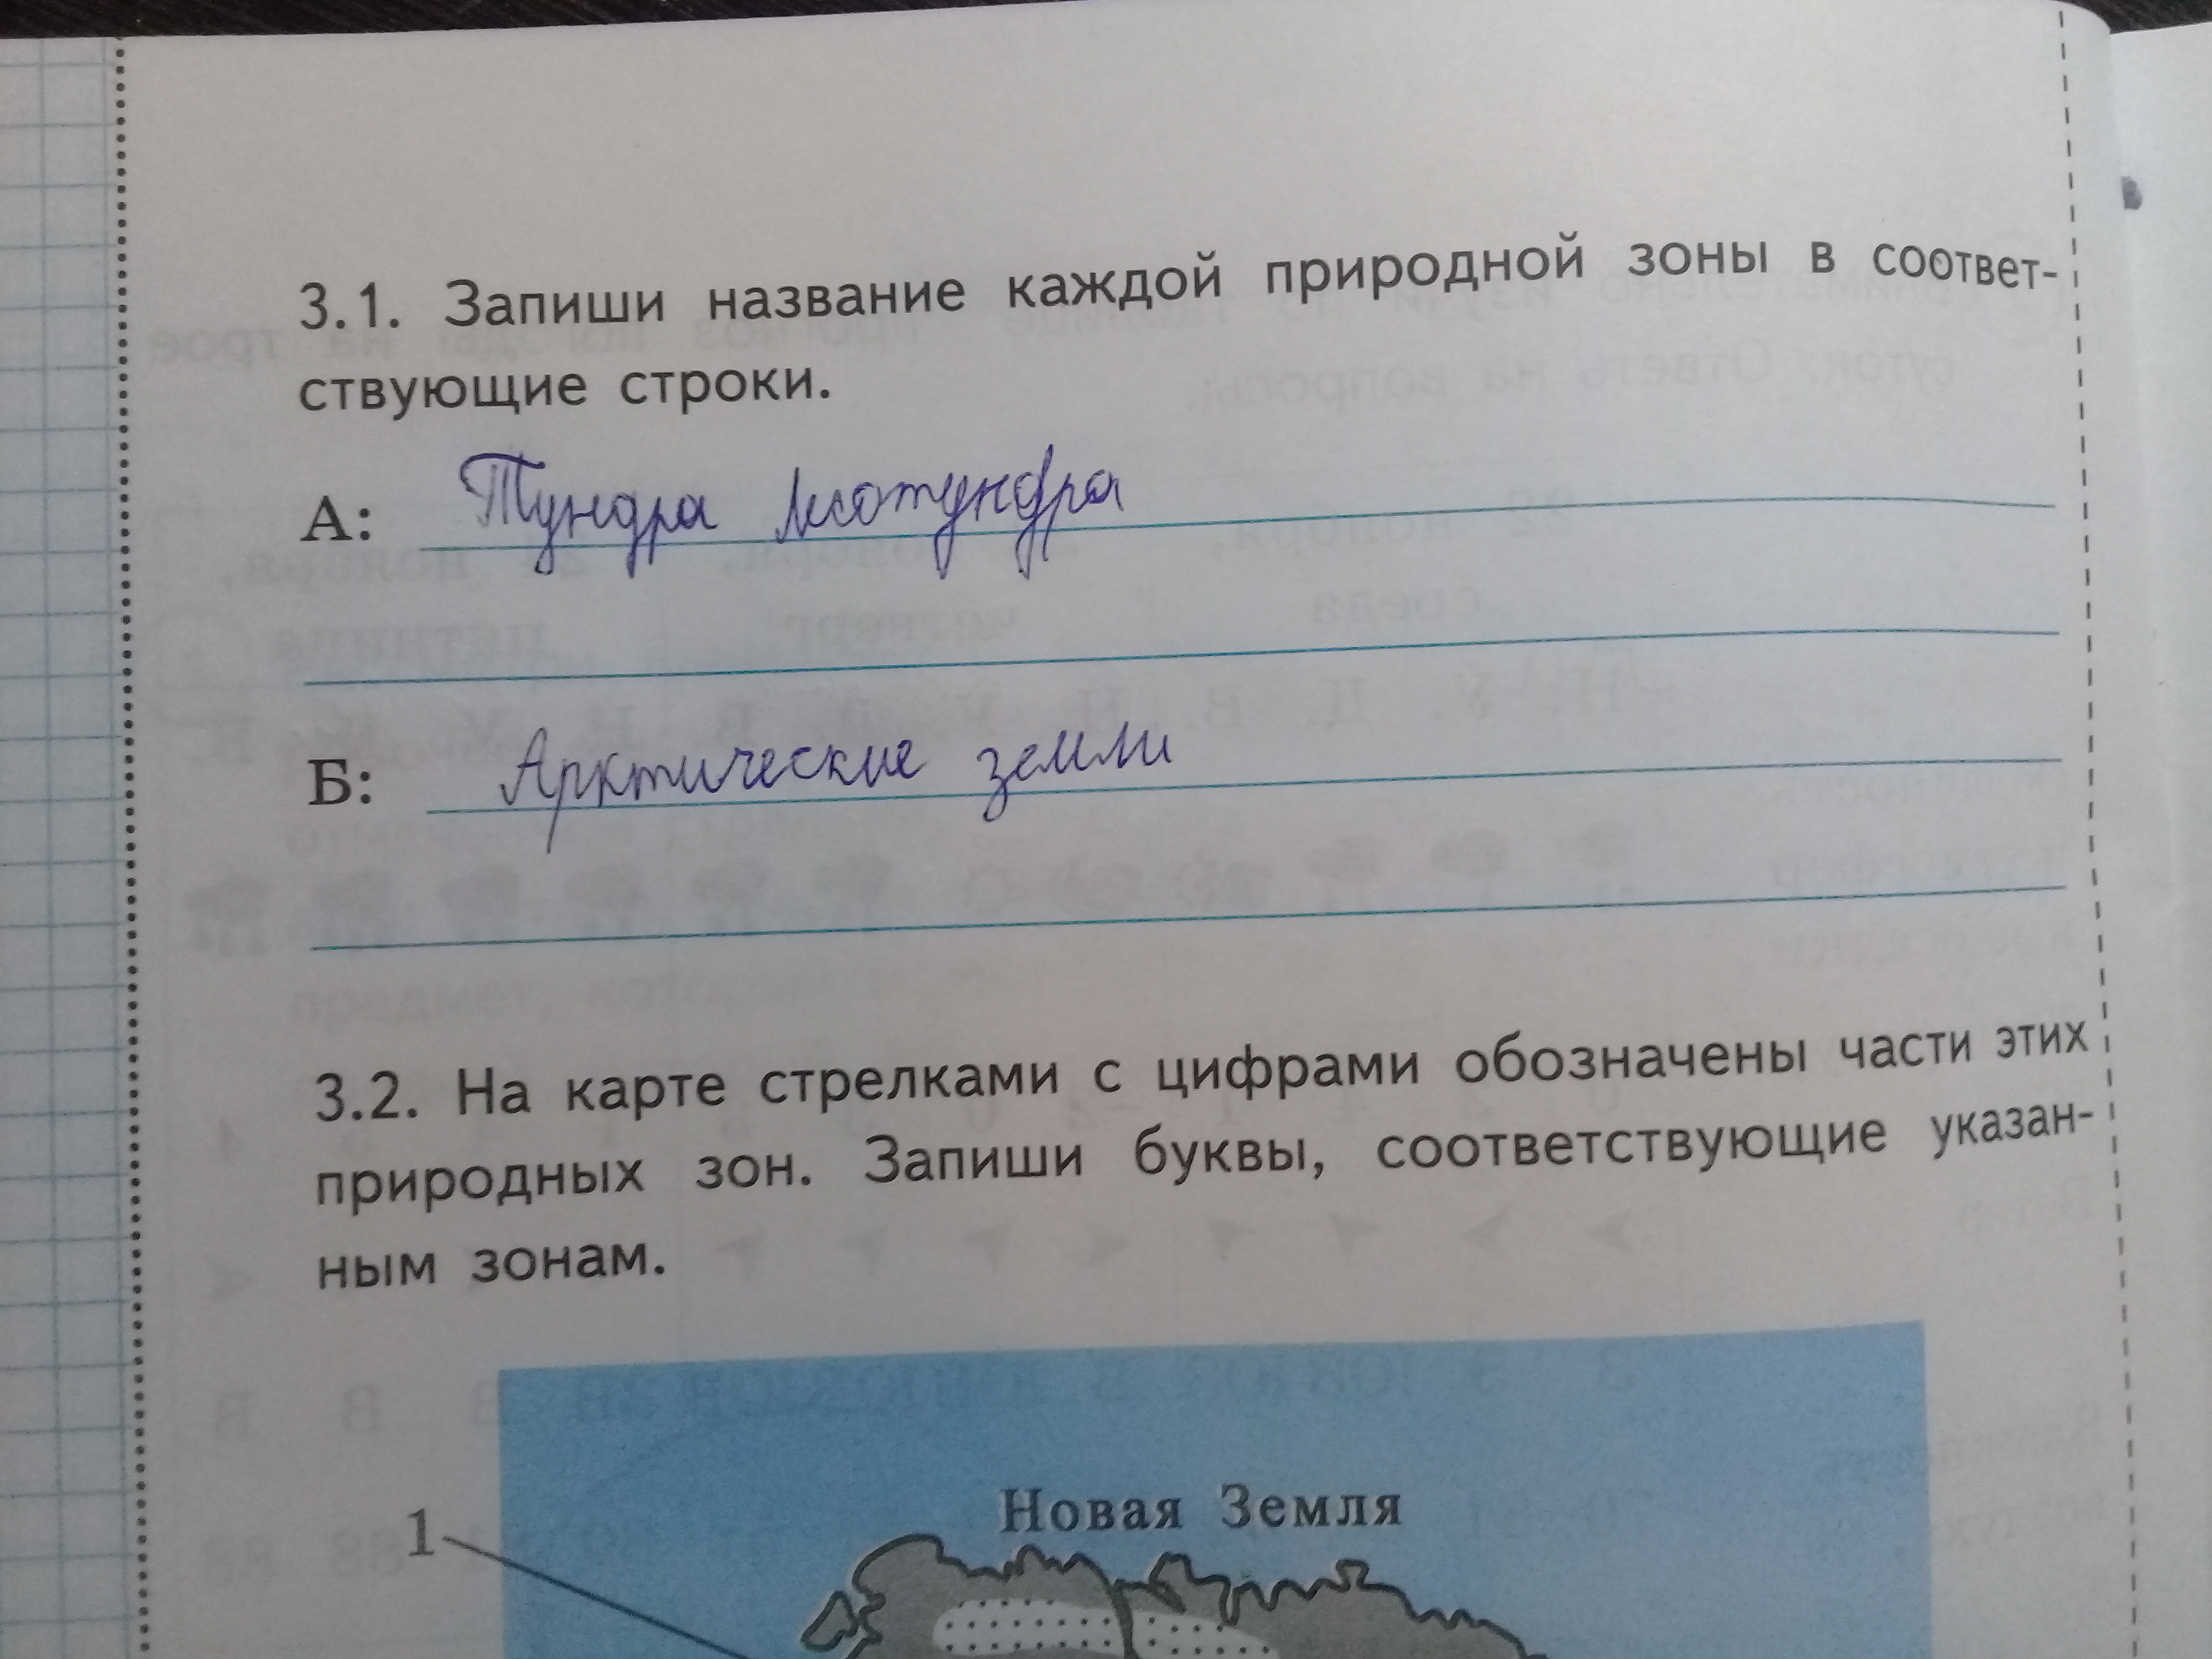 3.1. Запиши название каждой природной зоны в соответ-
ствующие строки.
А: Тундра лесотундра
Б: Арктические земли
3.2. На карте стрелками с цифрами обозначены части этих
природных зон. Запиши буквы, соответствующие указан-
ным зонам.
Новая Земля
1